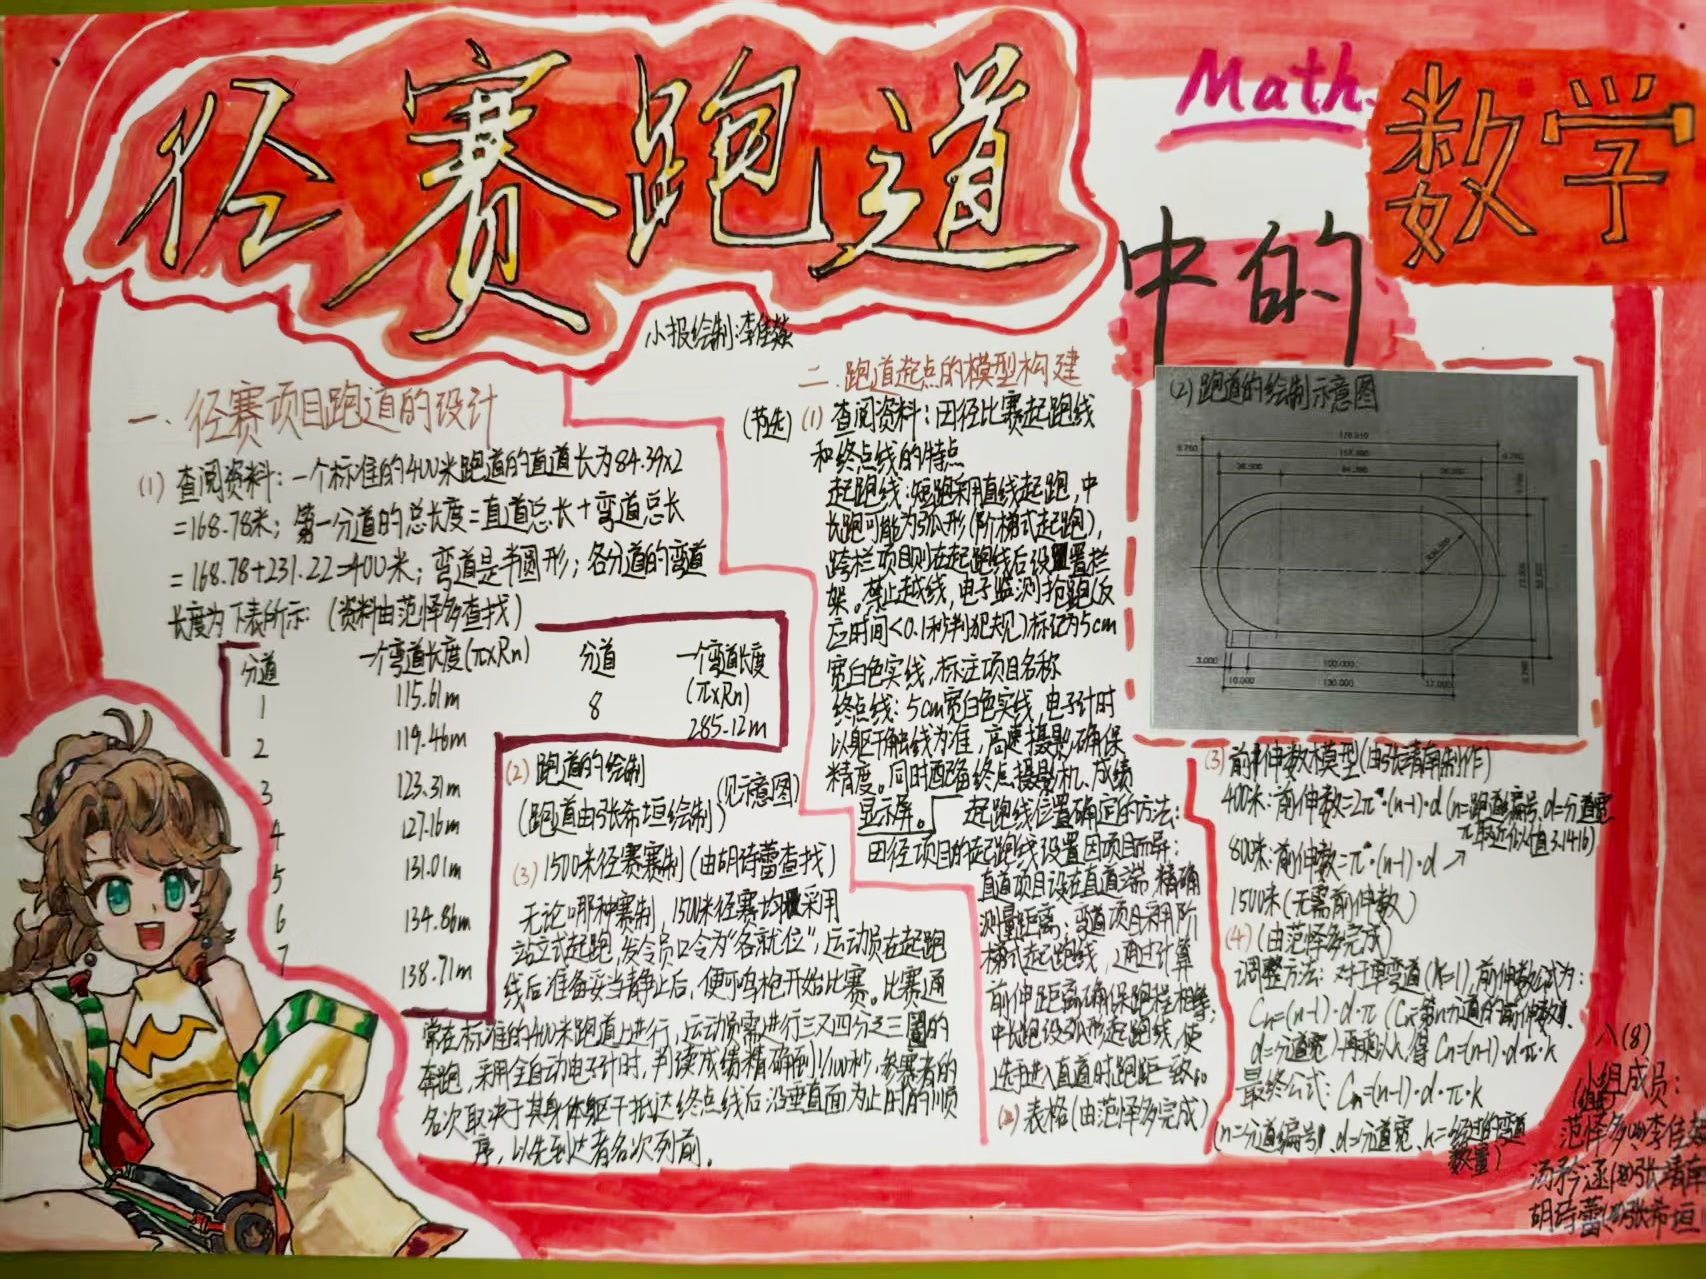 径赛跑道
Math.
数学
中的
小报绘制:李佳
一、径赛项目跑道的设计
(1) 查阅资料:一个标准的400米跑道的直道长为84.39×2
=168.78米;第一分道的总长度=直道总长+弯道总长
=168.78+231.22=400米;弯道是半圆形;各分道的弯道
长度为下表所示:(资料由范怿多查找)
分道 一个弯道长度(π×Rn) 分道 一个弯道长度
(π×Rn)
1 115.61m 8 285.12m
2 119.46m
3 123.31m
4 127.16m
5 131.01m
6 134.86m
7 138.71m
(2) 跑道的绘制
(跑道由张希垣绘制)(见示意图)
(3) 1500米径赛赛制(由胡诗蕾查找)
无论哪种赛制,1500米径赛均采用
站立式起跑,发令员口令为“各就位”,运动员在起跑
线后准备妥当静止后,便可鸣枪开始比赛。比赛通
常在标准的400米跑道上进行,运动员需进行三又四分之三圈的
奔跑,采用全自动电子计时,判读成绩精确到1/100秒,参赛者的
名次取决于其身体躯干抵达终点线后沿垂直面为止时的顺
序,以先到达者名次列前。
二、跑道起点的模型构建
(节选)(1) 查阅资料:田径比赛起跑线
和终点线的特点
起跑线:短跑采用直线起跑,中
长跑可能为弧形(阶梯式起跑),
跨栏项目则在起跑线后设置栏
架。禁止越线,电子监测抢跑(反
应时间<0.1秒判犯规)标记为5cm
宽白色实线,标注项目名称
终点线:5cm宽白色实线,电子计时
以躯干触线为准,高速摄影确保
精度。同时配备终点摄影机、成绩
显示屏。
起跑线位置确定的方法:
田径项目的起跑线设置因项目而异:
直道项目设在直道端,精确
测量距离;弯道项目采用阶
梯式起跑线,通过计算
前伸距离确保跑程相等;
中长跑设弧形起跑线,使
选手进入直道时跑距一致。
(2) 表格(由范怿多完成)
(2) 跑道的绘制示意图
(3) 前伸数模型(由张靖甯制作)
400米:前伸数=2π·(n-1)·d (n=跑道编号,d=分道宽
π取近似值3.1416)
800米:前伸数=π·(n-1)·d
1500米(无需前伸数)
(4) (由范怿多完成)
调整方法:对于单弯道(k=1),前伸数公式为:
Cn=(n-1)·d·π (Cn=第n分道的前伸数,
d=分道宽)再乘以k,得 Cn=(n-1)·d·π·k
最终公式:Cn=(n-1)·d·π·k
(n=分道编号,d=分道宽,k=经过的弯道
数量)
八(8)
小组成员:
范怿多 李佳
汤矜涵 张靖
胡诗蕾 张希垣